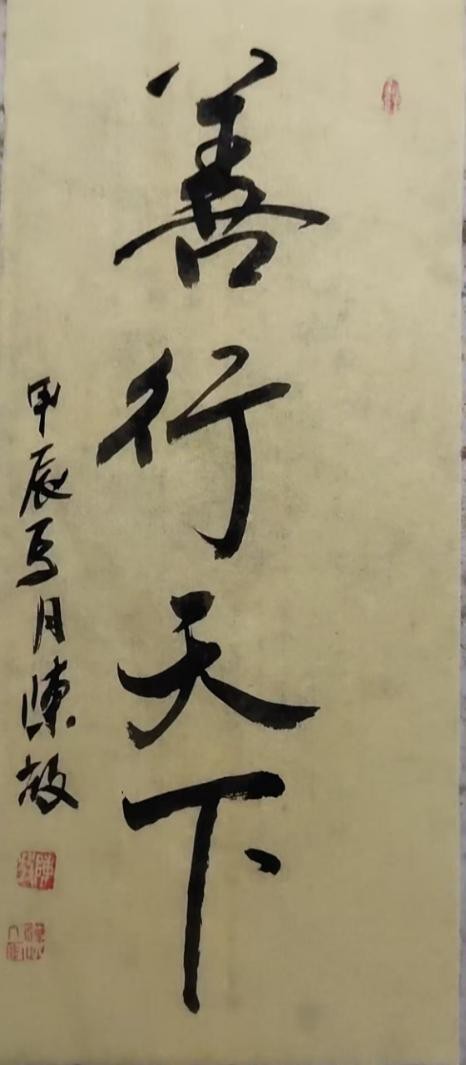 善行天下
甲辰馬月陳